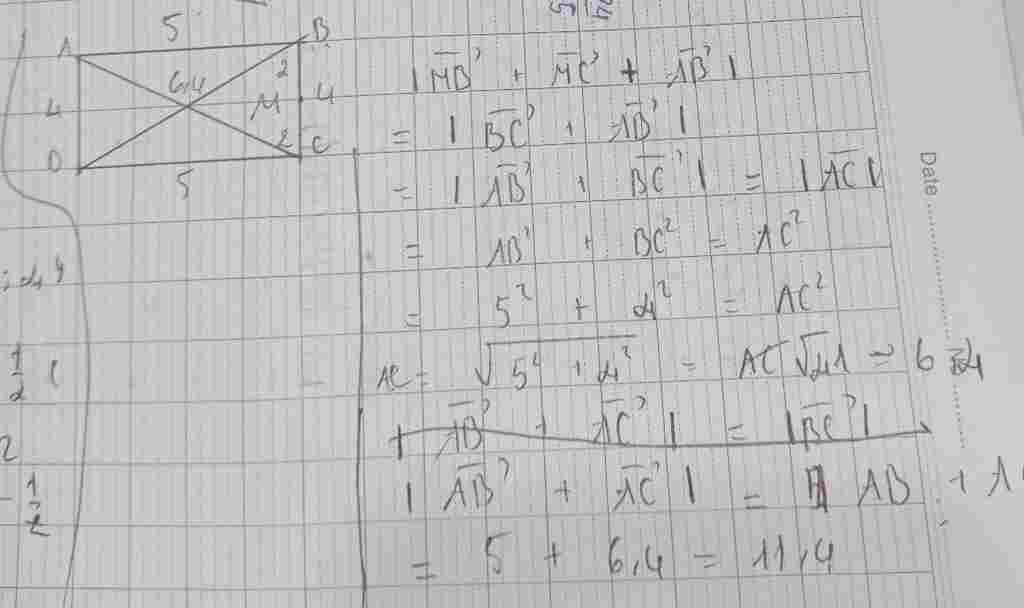 5
A B
2
6,4
4 M 4
2
D C
5
|MB + MC + AB|
= |BC + AB|
= |AB + BC| = |AC|
= AB² + BC² = AC²
= 5² + 4² = AC²
AC = √5² + 4² = AC √41 = 6,4
+ AB + AC| = |BC|
|AB + AC| = AB + A
= 5 + 6,4 = 11,4
1
2 (
2
- 1
2
Date